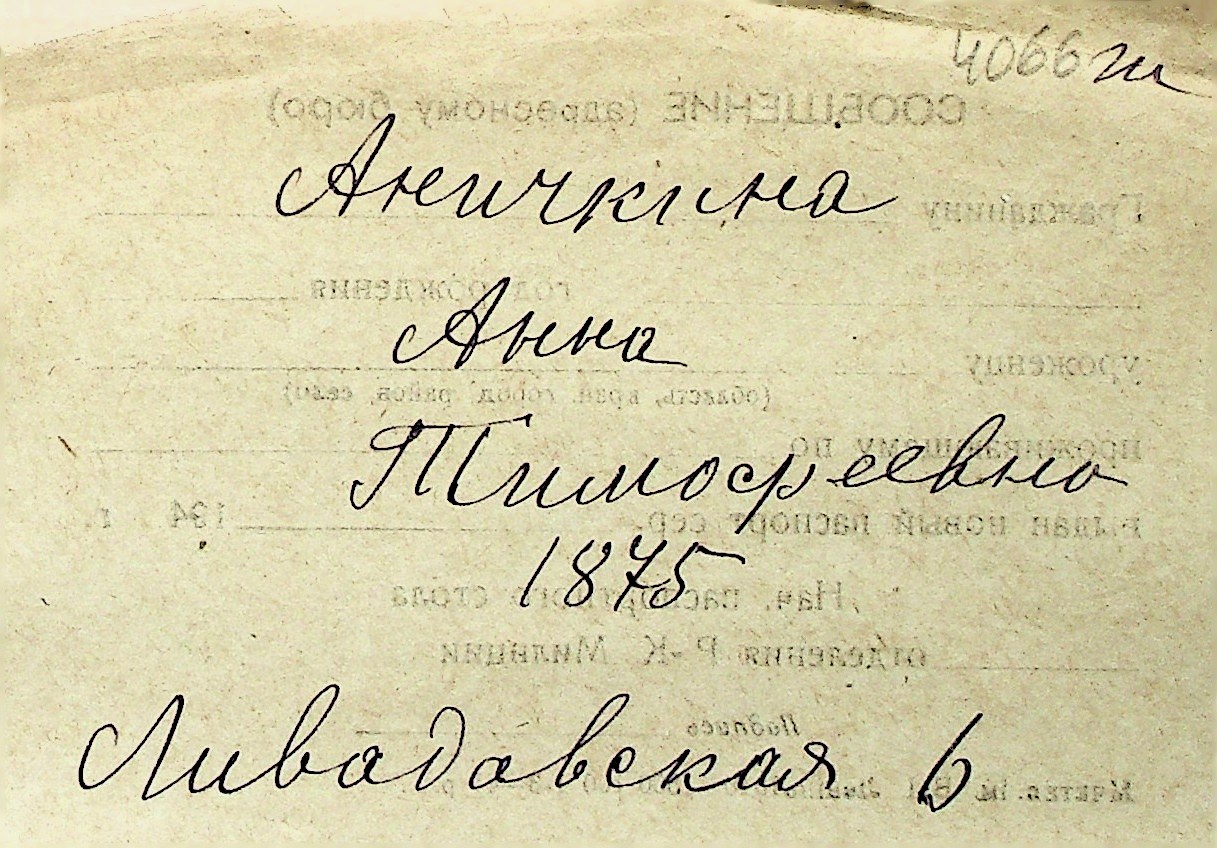 4066
Аничкина
Анна
Тимофеевна
1875
Ливадовская 6